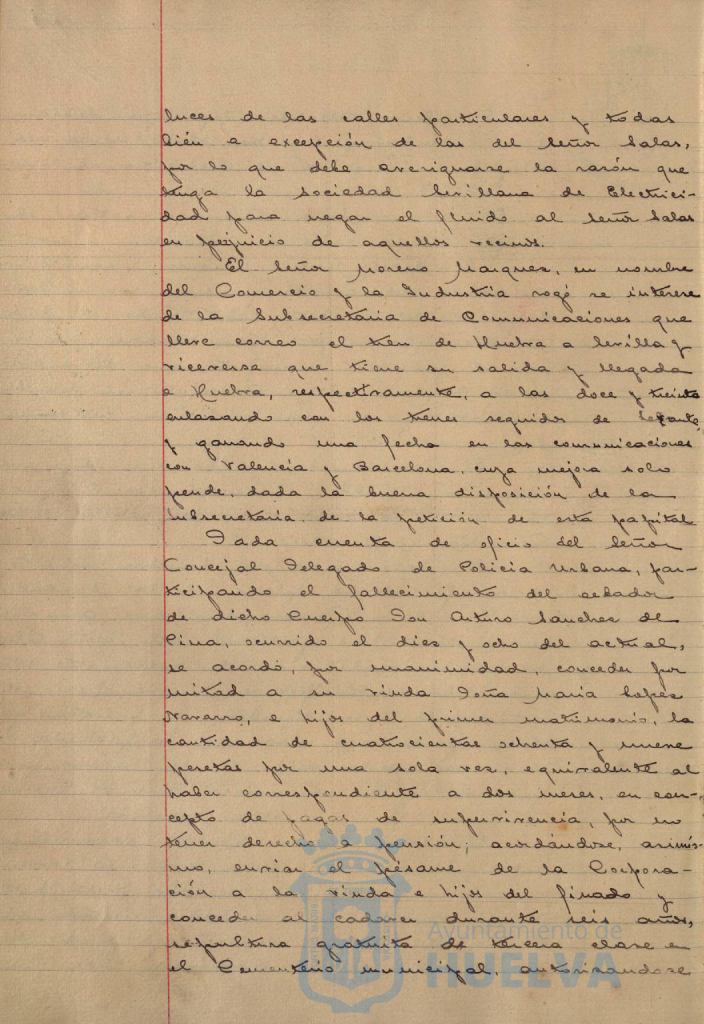 luces de las calles particulares y todas
bién a excepción de las del Señor Salas,
por lo que debe averiguarse la razón que
tenga la Sociedad Sevillana de Electrici-
dad para negar el fluido al Señor Salas
en perjuicio de aquellos vecinos.
El Señor Moreno Marquez, en nombre
del Comercio y la Industria rogó se interese
de la Subsecretaria de Comunicaciones que
lleve correo el tren de Huelva a Sevilla y
viceversa que tiene su salida y llegada
a Huelva, respectivamente, a las doce y treinta
enlazando con los trenes seguidos de Levante,
y ganando una fecha en las comunicaciones
con Valencia y Barcelona, cuya mejora solo
pende, dada la buena disposición de la
Subsecretaria, de la petición de esta papital
Dada cuenta de oficio del Señor
Concejal Delegado de Policia Urbana, par-
ticipando el fallecimiento del celador
de dicho Cuerpo Don Arturo Sanchez de
Cina, ocurrido el diez y ocho del actual,
se acordó, por unanimidad, conceder por
mitad a su viuda Doña Maria Lopez
Navarro, e hijos del primer matrimonio, la
cantidad de cuatrocientas ochenta y nueve
pesetas por una sola vez, equivalente al
haber correspondiente a dos meses, en con-
cepto de pagas de supervivencia, por no
tener derecho a pensión; acordándose, asimis-
mo, enviar el pésame de la Corpora-
ción a la viuda e hijos del finado y
conceder al cadaver durante seis años,
sepultura gratuita de tercera clase en
el Cementerio municipal, autorizandose
Ayuntamiento de
HUELVA